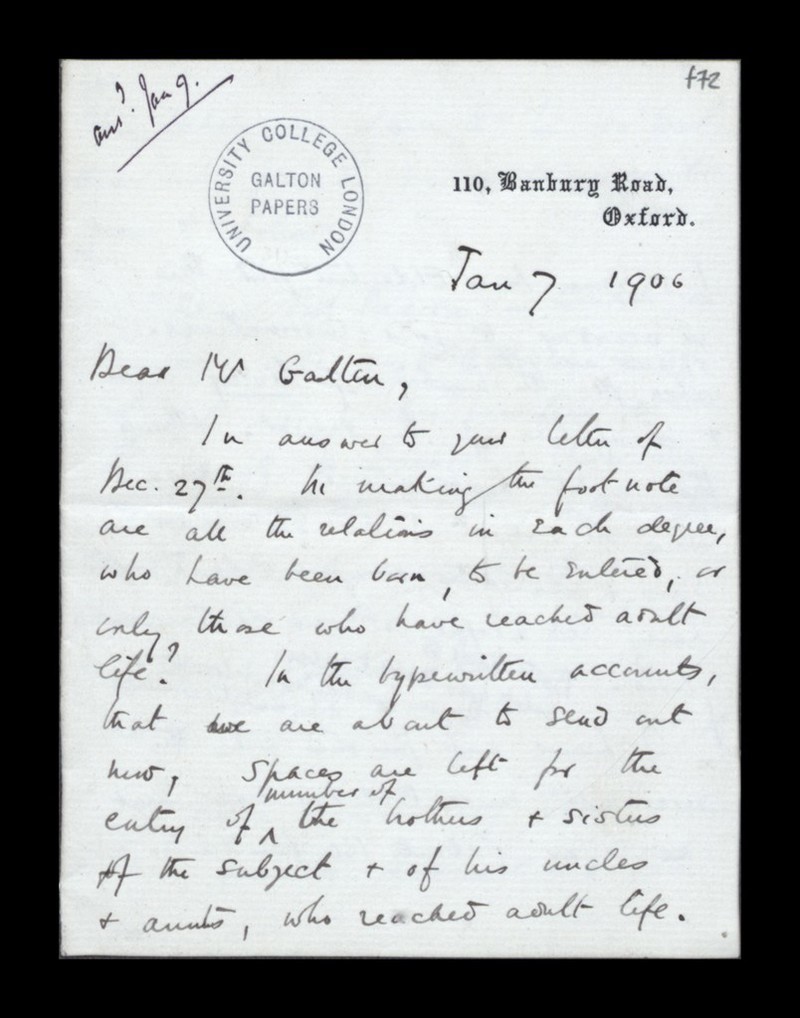 ansd. Jan 9.
f72
UNIVERSITY COLLEGE LONDON
GALTON
PAPERS
110, Banbury Road,
Oxford.
Jan 7 1906
Dear Mr Galton,
In answer to your letter of
Dec. 27th. In making the foot note
are all the relations in each degree,
who have been born, to be entered, or
only those who have reached adult
life? In the typewritten accounts,
that we are about to send out
now, spaces are left for the
number of
entry of ^ the brothers + sisters
of the subject + of his uncles
+ aunts, who reached adult life.